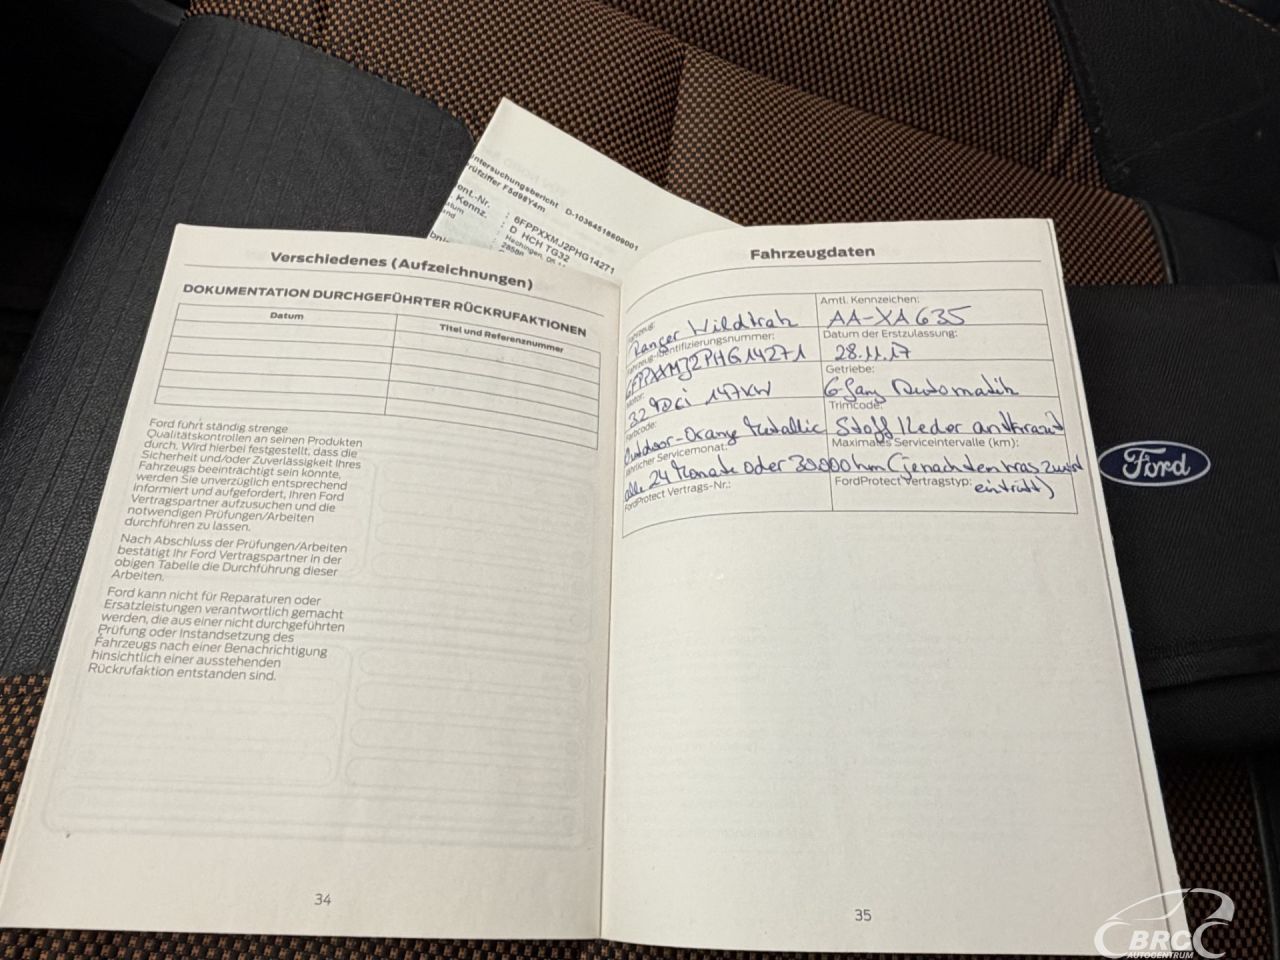 untersuchungsbericht D-10364518609001
Prüfziffer F5d98Y4m
ent.-Nr. : 6FPPXXMJ2PHG14271
. Kennz. : D HCH TG32
Hechingen,
Verschiedenes (Aufzeichnungen)
DOKUMENTATION DURCHGEFÜHRTER RÜCKRUFAKTIONEN
Datum
Titel und Referenznummer
Ford führt ständig strenge
Qualitätskontrollen an seinen Produkten
durch. Wird hierbei festgestellt, dass die
Sicherheit und/oder Zuverlässigkeit Ihres
Fahrzeugs beeinträchtigt sein könnte,
werden Sie unverzüglich entsprechend
informiert und aufgefordert, Ihren Ford
Vertragspartner aufzusuchen und die
notwendigen Prüfungen/Arbeiten
durchführen zu lassen.
Nach Abschluss der Prüfungen/Arbeiten
bestätigt Ihr Ford Vertragspartner in der
obigen Tabelle die Durchführung dieser
Arbeiten.
Ford kann nicht für Reparaturen oder
Ersatzleistungen verantwortlich gemacht
werden, die aus einer nicht durchgeführten
Prüfung oder Instandsetzung des
Fahrzeugs nach einer Benachrichtigung
hinsichtlich einer ausstehenden
Rückrufaktion entstanden sind.
34
Fahrzeugdaten
Fahrzeug:
Ranger Wildtrak
Amtl. Kennzeichen:
AA-XA635
Fahrzeug-Identifizierungsnummer:
6FPPXXMJ2PHG14271
Datum der Erstzulassung:
28.11.17
Motor:
3.2 TDCi 147KW
Getriebe:
6-Gang Automatik
Farbcode:
Outdoor-Orange Metallic
Trimcode:
Stoff/Leder anthrazit
Jährlicher Servicemonat:
Maximales Serviceintervalle (km):
alle 24 Monate oder 30000 km (je nachdem was zuerst
eintritt)
FordProtect Vertrags-Nr.:
FordProtect Vertragstyp:
35
Ford
BRC
AUTOCENTRUM